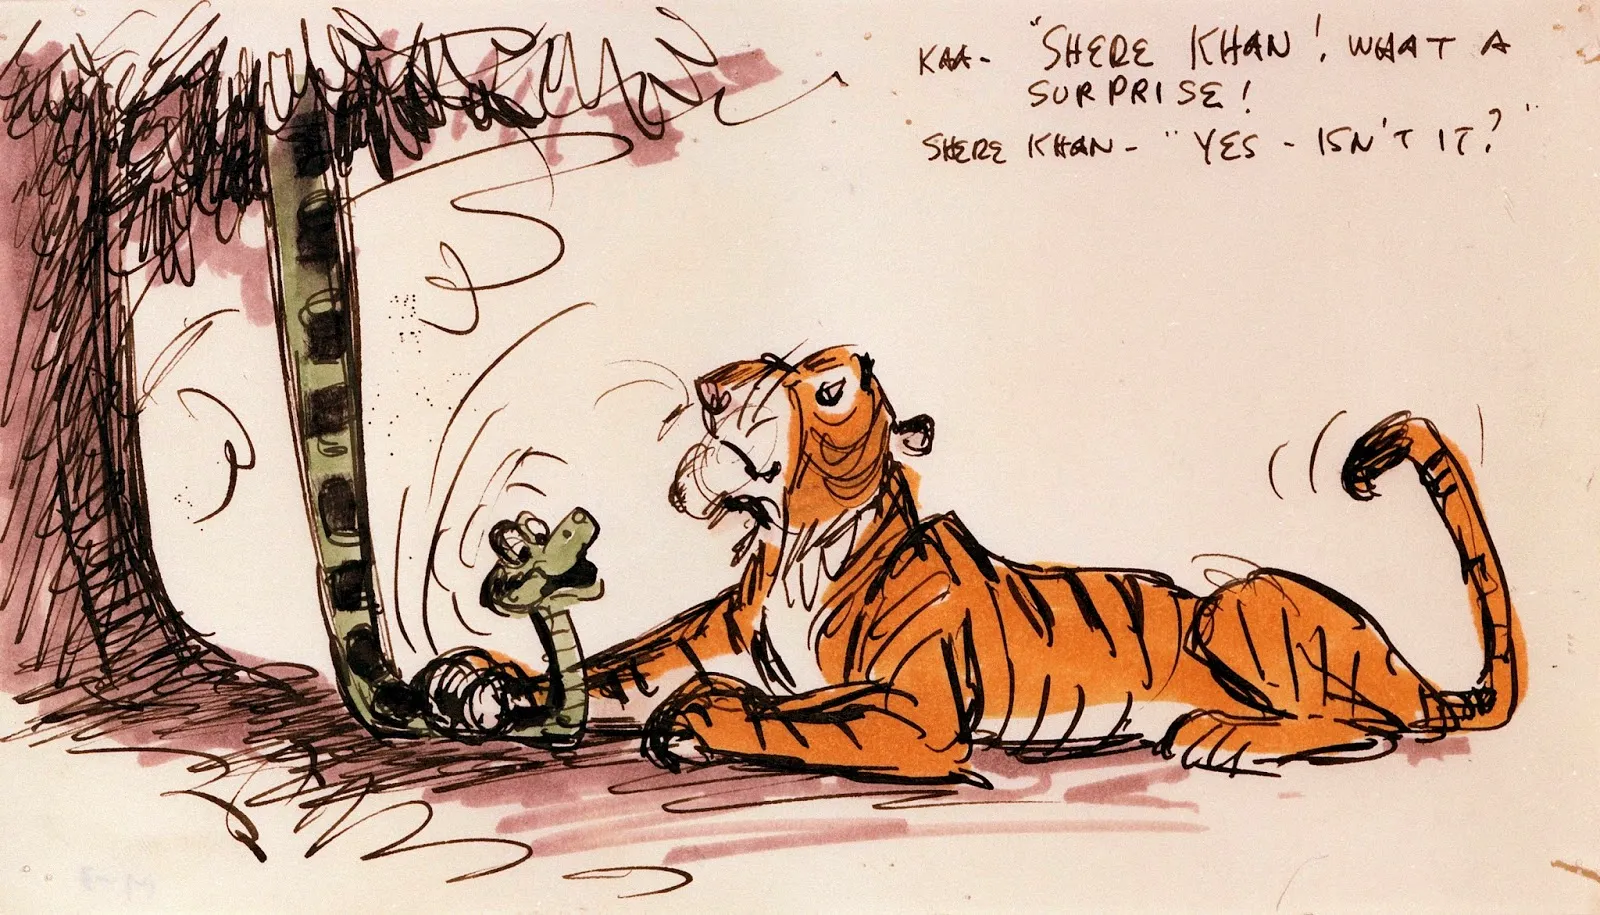 KAA- "SHERE KHAN! WHAT A
SURPRISE!
SHERE KHAN - "YES - ISN'T IT?"